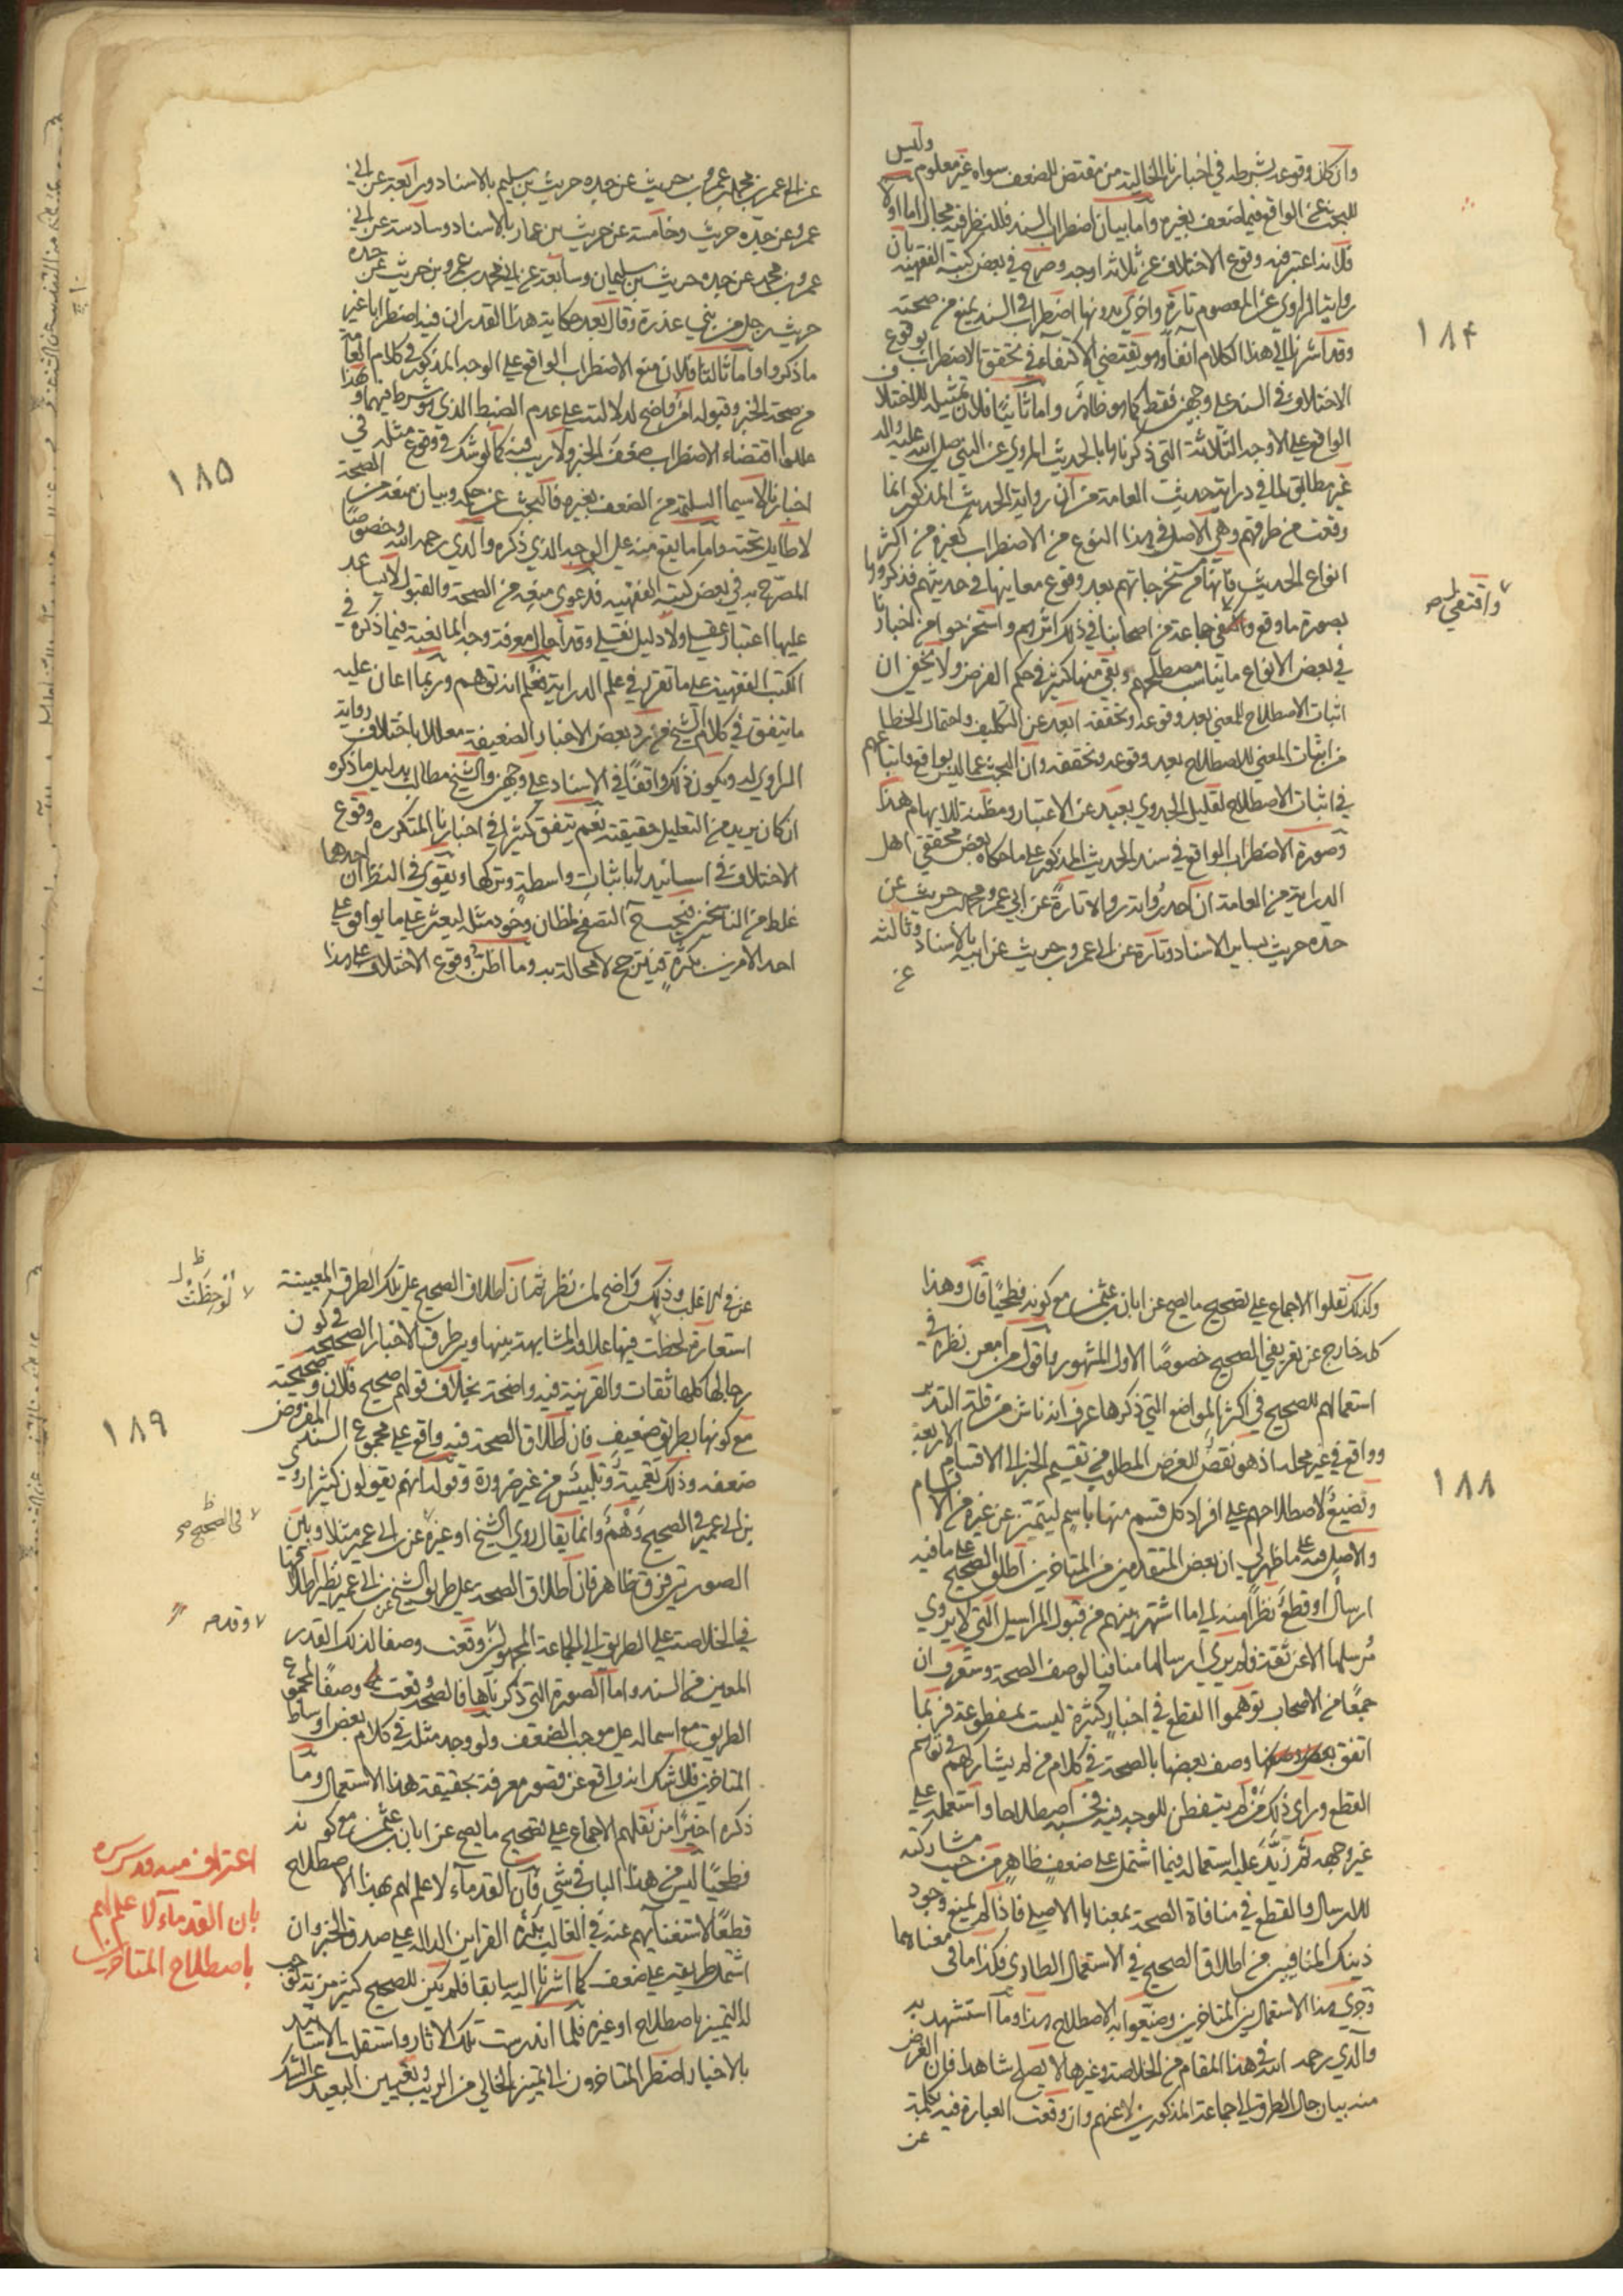 ١٨٤
وان كان وقوعه بشرطه في اخبارنا الخالية من مقتض للضعف سواه غير معلوم وليس
للبحث عن الواقع فيما ضعف بغيره واما بيان اضطراب السند فللنظر فيه مجال اما اولا
فلانه اعتبر فيه وقوع الاختلاف على ثلاثة اوجه وصرح في بعض كتبه الفقهية بان
رواية الراوي عن المعصوم تارة واخرى بدونها اضطراب في السند يمنع من صحته
وقد اشرنا الى هذا الكلام آنفا وهو يقتضي الاكتفاء في تحقق الاضطراب بوقوع
الاختلاف في السند على وجهين فقط كما هو ظاهر واما ثانيا فلان تمثيله للاختلاف
الواقع على الاوجه الثلاثة التي ذكرناها بالحديث المروي عن النبي صلى الله عليه واله
غير مطابق لما في دراية حديث العامة من ان رواية الحديث المذكور انما
وقعت من طرقهم وهي الاصل في هذا النوع من الاضطراب كغيره من اكثر
انواع الحديث فانها من مستخرجاتهم بعد وقوع معانيها في حديثهم فذكروها
بصورة ما وقع واقتفى جماعة من اصحابنا في ذلك اثرهم واستخرجوا من اخبارنا
في بعض الانواع ما يناسب مصطلحهم وبقي منها كثير في حكم الفرض ولا يخفى ان
اثبات الاصطلاح للمعنى بعد وقوعه وتحققه ابعد عن التكليف واحتمال الخطا
من اثبات المعنى للاصطلاح بعد وقوعه وتحققه وان البحث عما ليس بواقع واتباعهم
في اثبات الاصطلاح لقليل الجدوى بعيد عن الاعتبار ومظنة للايهام هذا
وصورة الاضطراب الواقع في سند الحديث المذكور على ما حكاه بعض محققي اهل
الدراية من العامة ان احد رواية رواه تارة عن ابي عمرو محمد بن حريث عن
جده حريث بساير الاسناد وتارة عن ابي عمرو بن حريث عن ابيه بالاسناد وثالثة
عن
واقتفى ص
١٨٥
عن ابي عمرو بن محمد بن عمرو بن حريث عن جده حريث بن سليم بالاسناد ورابعة عن ابي
عمرو عن جده حريث وخامسة عن حريث بن عمار بالاسناد وسادسة عن ابي
عمرو بن محمد عن جده حريث بن سليمان وسابعة عن ابي محمد بن عمرو بن حريث عن جده
حريث رجل من بني عذرة وقال بعد حكاية هذا القدر ان فيه اضطرابا غير
ما ذكروا واما ثالثا فلان منع الاضطراب الواقع على الوجه المذكور في كلام العامة
من صحة الخبر وقبوله امر واضح لدلالته على عدم الضبط الذي هو شرط فيهما وبهذا
عللوا اقتضاء الاضطراب ضعف الخبر ولا ريب فيه كما لو شك في وقوع مثله في
اخبارنا لا سيما السليمة من الضعف بغيره فالبحث عن حكمه وبيان منعه من الصحة
لا طايل تحته واما ما يقع منه على الوجه الذي ذكره والدي رحمه الله وخصوصا
المصرح به في بعض كتبه الفقهية فدعوى منعه من الصحة والقبول لا يساعد
عليها اعتبار عقلي ولا دليل نقلي وقد احال معرفة وجه المانعية فيما ذكره في
الكتب الفقهية على ما تقرر في علم الدراية فعلم انه توهم وربما اعان عليه
ما يتفق في كلام الشيخ من رد بعض الاخبار الضعيفة معللا باختلاف رواية
الراوي له ويكون ذلك واقعا في الاسناد على وجهين والشيخ مطالب بدليل ما ذكره
ان كان يريد من التعليل حقيقته نعم يتفق كثيرا في اخبارنا المتكرره وقوع
الاختلاف في اسانيدها باثبات واسطة وتركها ويقوى في النظر ان احدهما
غلط من الناسخين فيجب ح التصفح لمظان وجود مثله ليعثر على ما يوافق على
احد الامرين بكثرة فيترجح لا محالة به وما اظن وقوع الاختلاف على هذا
١٨٨
وكذلك نقلوا الاجماع على تصحيح ما يصح عن ابان بن عثمن مع كونه فطحيا قال وهذا
كله خارج عن تعريفي الصحيح خصوصا الاول المشهور واقول من امعن نظره في
استعمالهم للصحيح في اكثر المواضع التي ذكرها عرف انه ناش من قلة التدبر
وواقع في غير محله اذ هو نقص للغرض المطلوب من تقسيم الخبر الى الاقسام الاربعة
وتضييع لاصطلاحهم على افراد كل قسم منها باسم ليتميز عن غيره من الاقسام
والاصل فيه على ما ظهر لي ان بعض المتقدمين من المتاخرين اطلق الصحيح على ما فيه
ارسال او قطع نظرا منه الى ما اشتهر بينهم من قبول المراسيل التي لا يروي
مرسلها الا عن ثقة فلم ير في ارسالها منافيا لوصف الصحة وستعرف ان
جمعا من الاصحاب توهموا القطع في اخبار كثيرة ليست بمقطوعة فربما
اتفق وصف بعضها بالصحة في كلام من لم يشاركهم في توهم
القطع وراى ذلك من لم يتفطن للوجه فيه فحسبه اصطلاحا واستعمله على
غير وجهه ثم زيد عليه استعماله فيما اشتمل على ضعف ظاهر من حيث مشاركته
للارسال والقطع في منافاة الصحة بمعناها الاصلي فاذا لم يمنع وجود
ذينك المنافيين من اطلاق الصحيح في الاستعمال الطاري فكذا ما في معناهما
وجرى هذا الاستعمال بين المتاخرين وضيعوا به الاصطلاح هذا وما استشهد به
والدي رحمه الله في هذا المقام من الخلاصة وغيرها لا يصلح شاهدا فان الغرض
منه بيان حال الطرق الى الجماعة المذكورين لا عنهم وان وقعت العبارة فيه بكلمة
عن
١٨٩
عن في الاغلب وذلك واضح لمن نظر ثم ان اطلاق الصحيح على تلك الطرق المعينة
استعارة لحظت فيها علاقة المشابهة بينها وبين طرق الاخبار الصحيحة في كون
رجالها كلها ثقات والقرينة فيه واضحة بخلاف قولهم صحيح فلان وصحيحته
مع كونها بطريق ضعيف فان اطلاق الصحة فيه واقع على مجموع السند المفروض
ضعفه وذلك تعمية وتلبيس من غير ضرورة وقوله انهم يقولون كثيرا روى
بن ابي عمير في الصحيح وهم وانما يقال روى الشيخ او غيره عن بن ابي عمير مثلا وبين
الصورتين فرق ظاهر فان اطلاق الصحة على طريق الشيخ عن بن ابي عمير نظير اطلاقها
في الخلاصة على الطريق الى الجماعة المجهولين وقعت وصفا لذلك القدر
المعين من السند واما الصورة التي ذكرناها فالصحة وقعت وصفا لمجموع
الطريق مع اشتماله على موجب الضعف ولو وجد مثله في كلام بعض اوساط
المتاخرين فلا شك انه واقع عن قصور معرفة بحقيقة هذا الاستعمال وما
ذكره اخيرا من نقلهم الاجماع على تصحيح ما يصح عن ابان بن عثمن مع كونه
فطحيا ليس من هذا الباب في شي فان القدماء لا علم لهم بهذا الاصطلاح
قطعا لاستغنائهم عنه في الغالب بكثرة القراين الدالة على صدق الخبر وان
اشتمل طريقه على ضعف كما اشرنا اليه سابقا فلم يكن للصحيح كثير مزية توجب
له التميز باصطلاح او غيره فلما اندرست تلك الاثار واستقلت الاسانيد
بالاخبار اضطر المتاخرون الى تمييز الخالي من الريب وتعيين البعيد عن الشك
لوحظت ظ ل
في الصحيح ص ظ
وقد مر
اعتراف منه قدس سره
بان القدماء لا علم لهم
باصطلاح المتاخرين